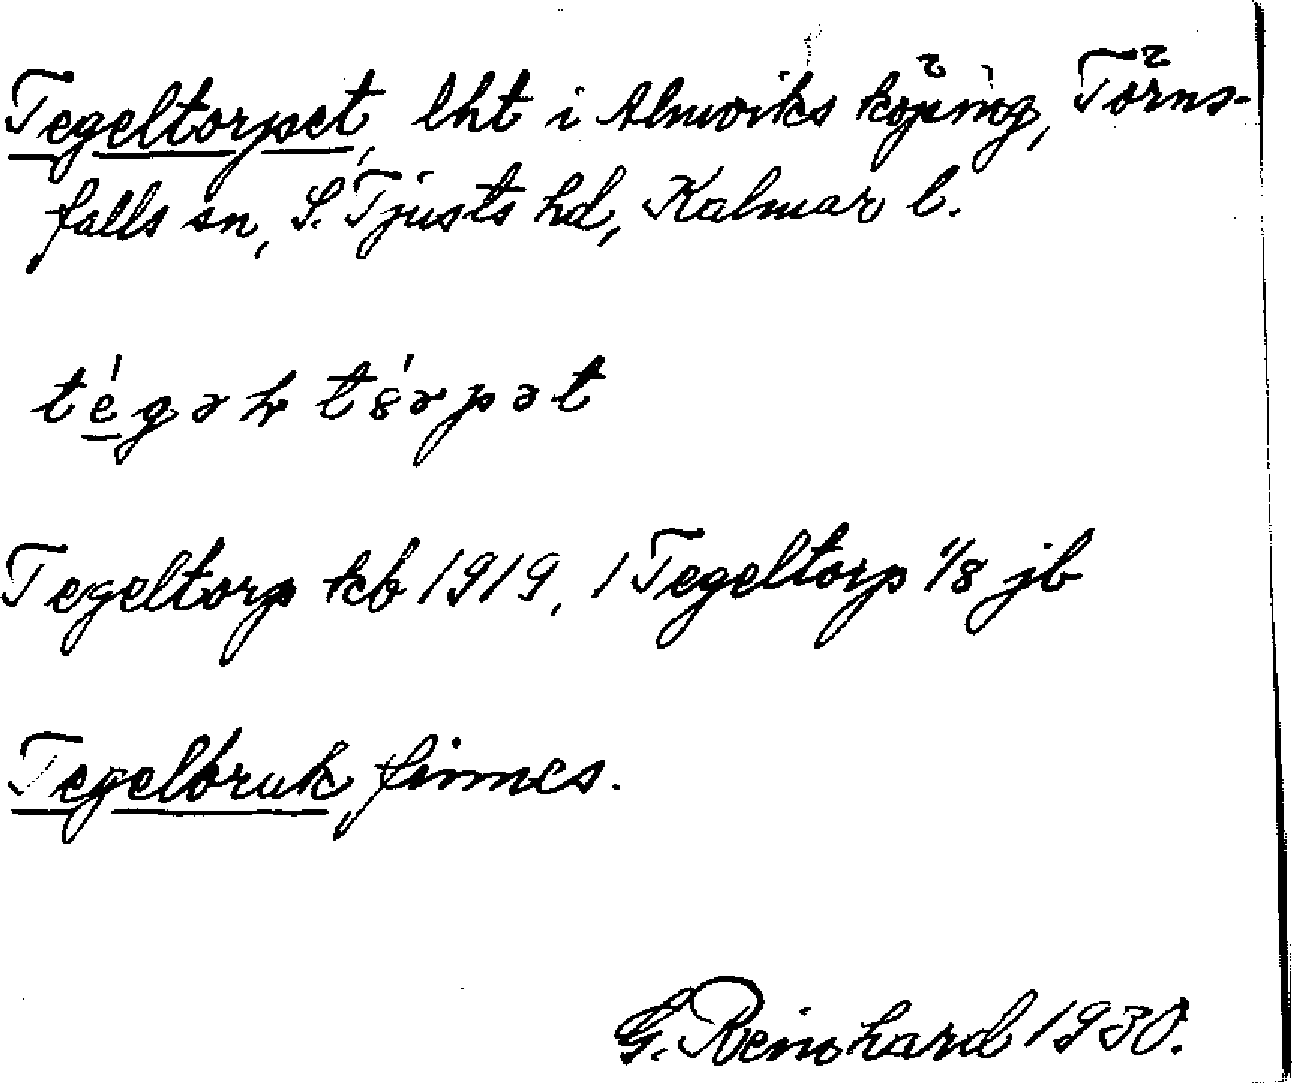 Tegeltorpet, lht i Almviks köping, Törns-
falls sn, S. Tjusts hd, Kalmar l.
Tegeltorp kb 1919, 1 Tegeltorp 1/8 jb
Tegelbruk finnes.
G. Reinhard 1930.